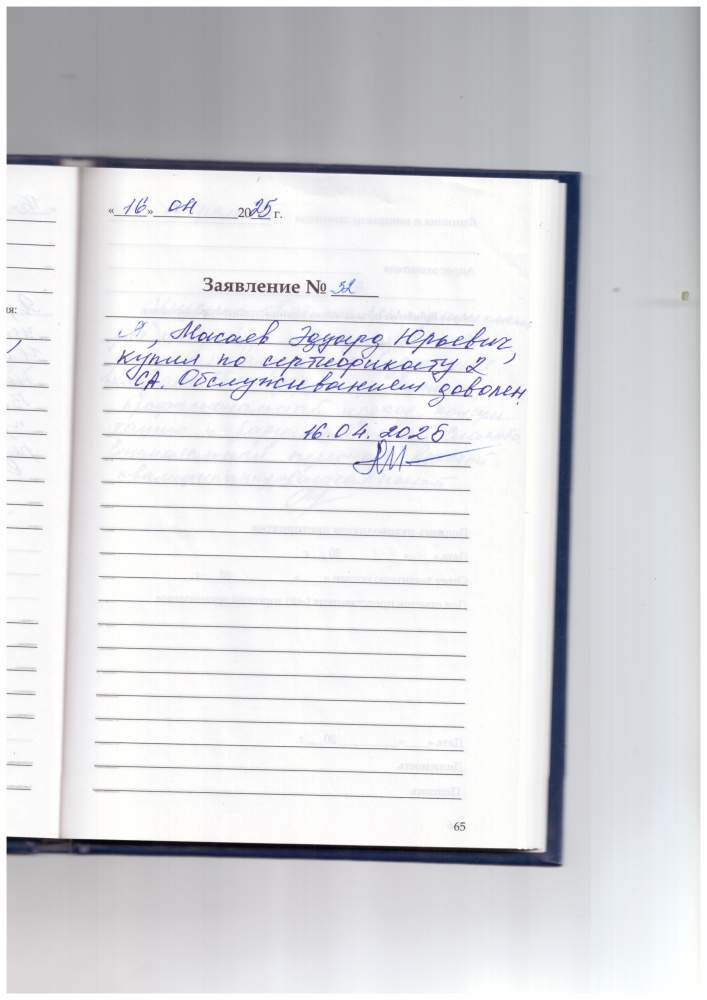 « 16 » 04 2025 г.
Заявление № 32
я:
Я, Масаев Эдуард Юрьевич,
купил по сертификату 2
СА. Обслуживанием доволен.
16.04.2025
65